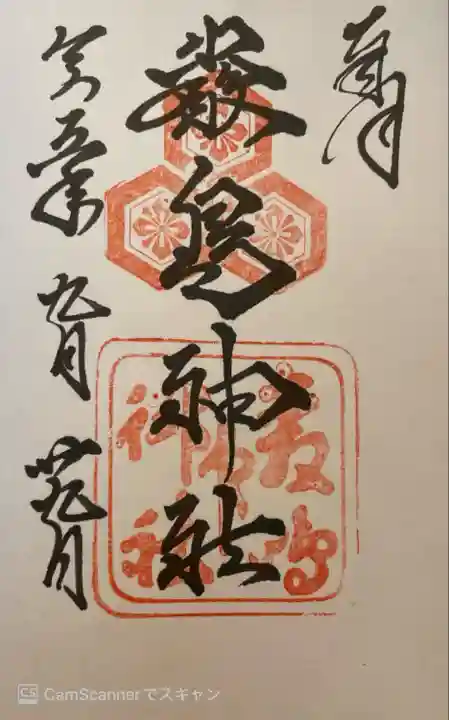 奉拝
嚴島神社
令和五年 九月 廿九日
CS CamScannerでスキャン